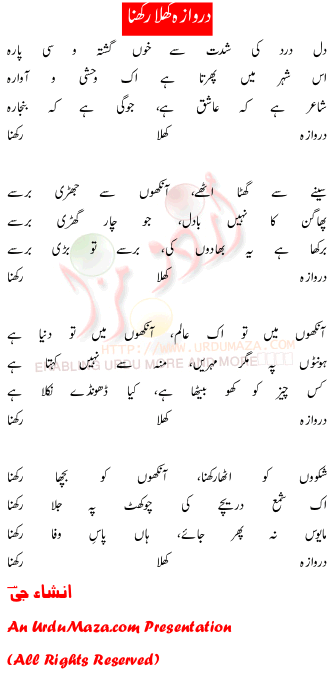 دروازہ کھلا رکھنا
دل درد کی شدت سے خوں گشتہ و سی پارہ
اس شہر میں پھرتا ہے اک وحشی و آوارہ
شاعر ہے کہ عاشق ہے، جوگی ہے کہ بنجارہ
دروازہ کھلا رکھنا
سینے سے گھٹا اٹھے، آنکھوں سے جھڑی برسے
پھاگن کا نہیں بادل، جو چار گھڑی برسے
برکھا ہے یہ بھادوں کی، برسے تو بڑی برسے
دروازہ کھلا رکھنا
آنکھوں میں تو اک عالم، آنکھوں میں تو دنیا ہے
ہونٹوں پہ مگر مہریں، منہ سے نہیں کہتا ہے
کس چیز کو کھو بیٹھا ہے، کیا ڈھونڈے نکلا ہے
دروازہ کھلا رکھنا
شکووں کو اٹھا رکھنا، آنکھوں کو بچھا رکھنا
اک شمع دریچے کی چوکھٹ پہ جلا رکھنا
مایوس نہ پھر جائے، ہاں پاسِ وفا رکھنا
دروازہ کھلا رکھنا
انشاء جی
An UrduMaza.com Presentation
(All Rights Reserved)
اردو مزا
HTTP://WWW.URDUMAZA.COM
ENABLING URDU MORE AND MORE